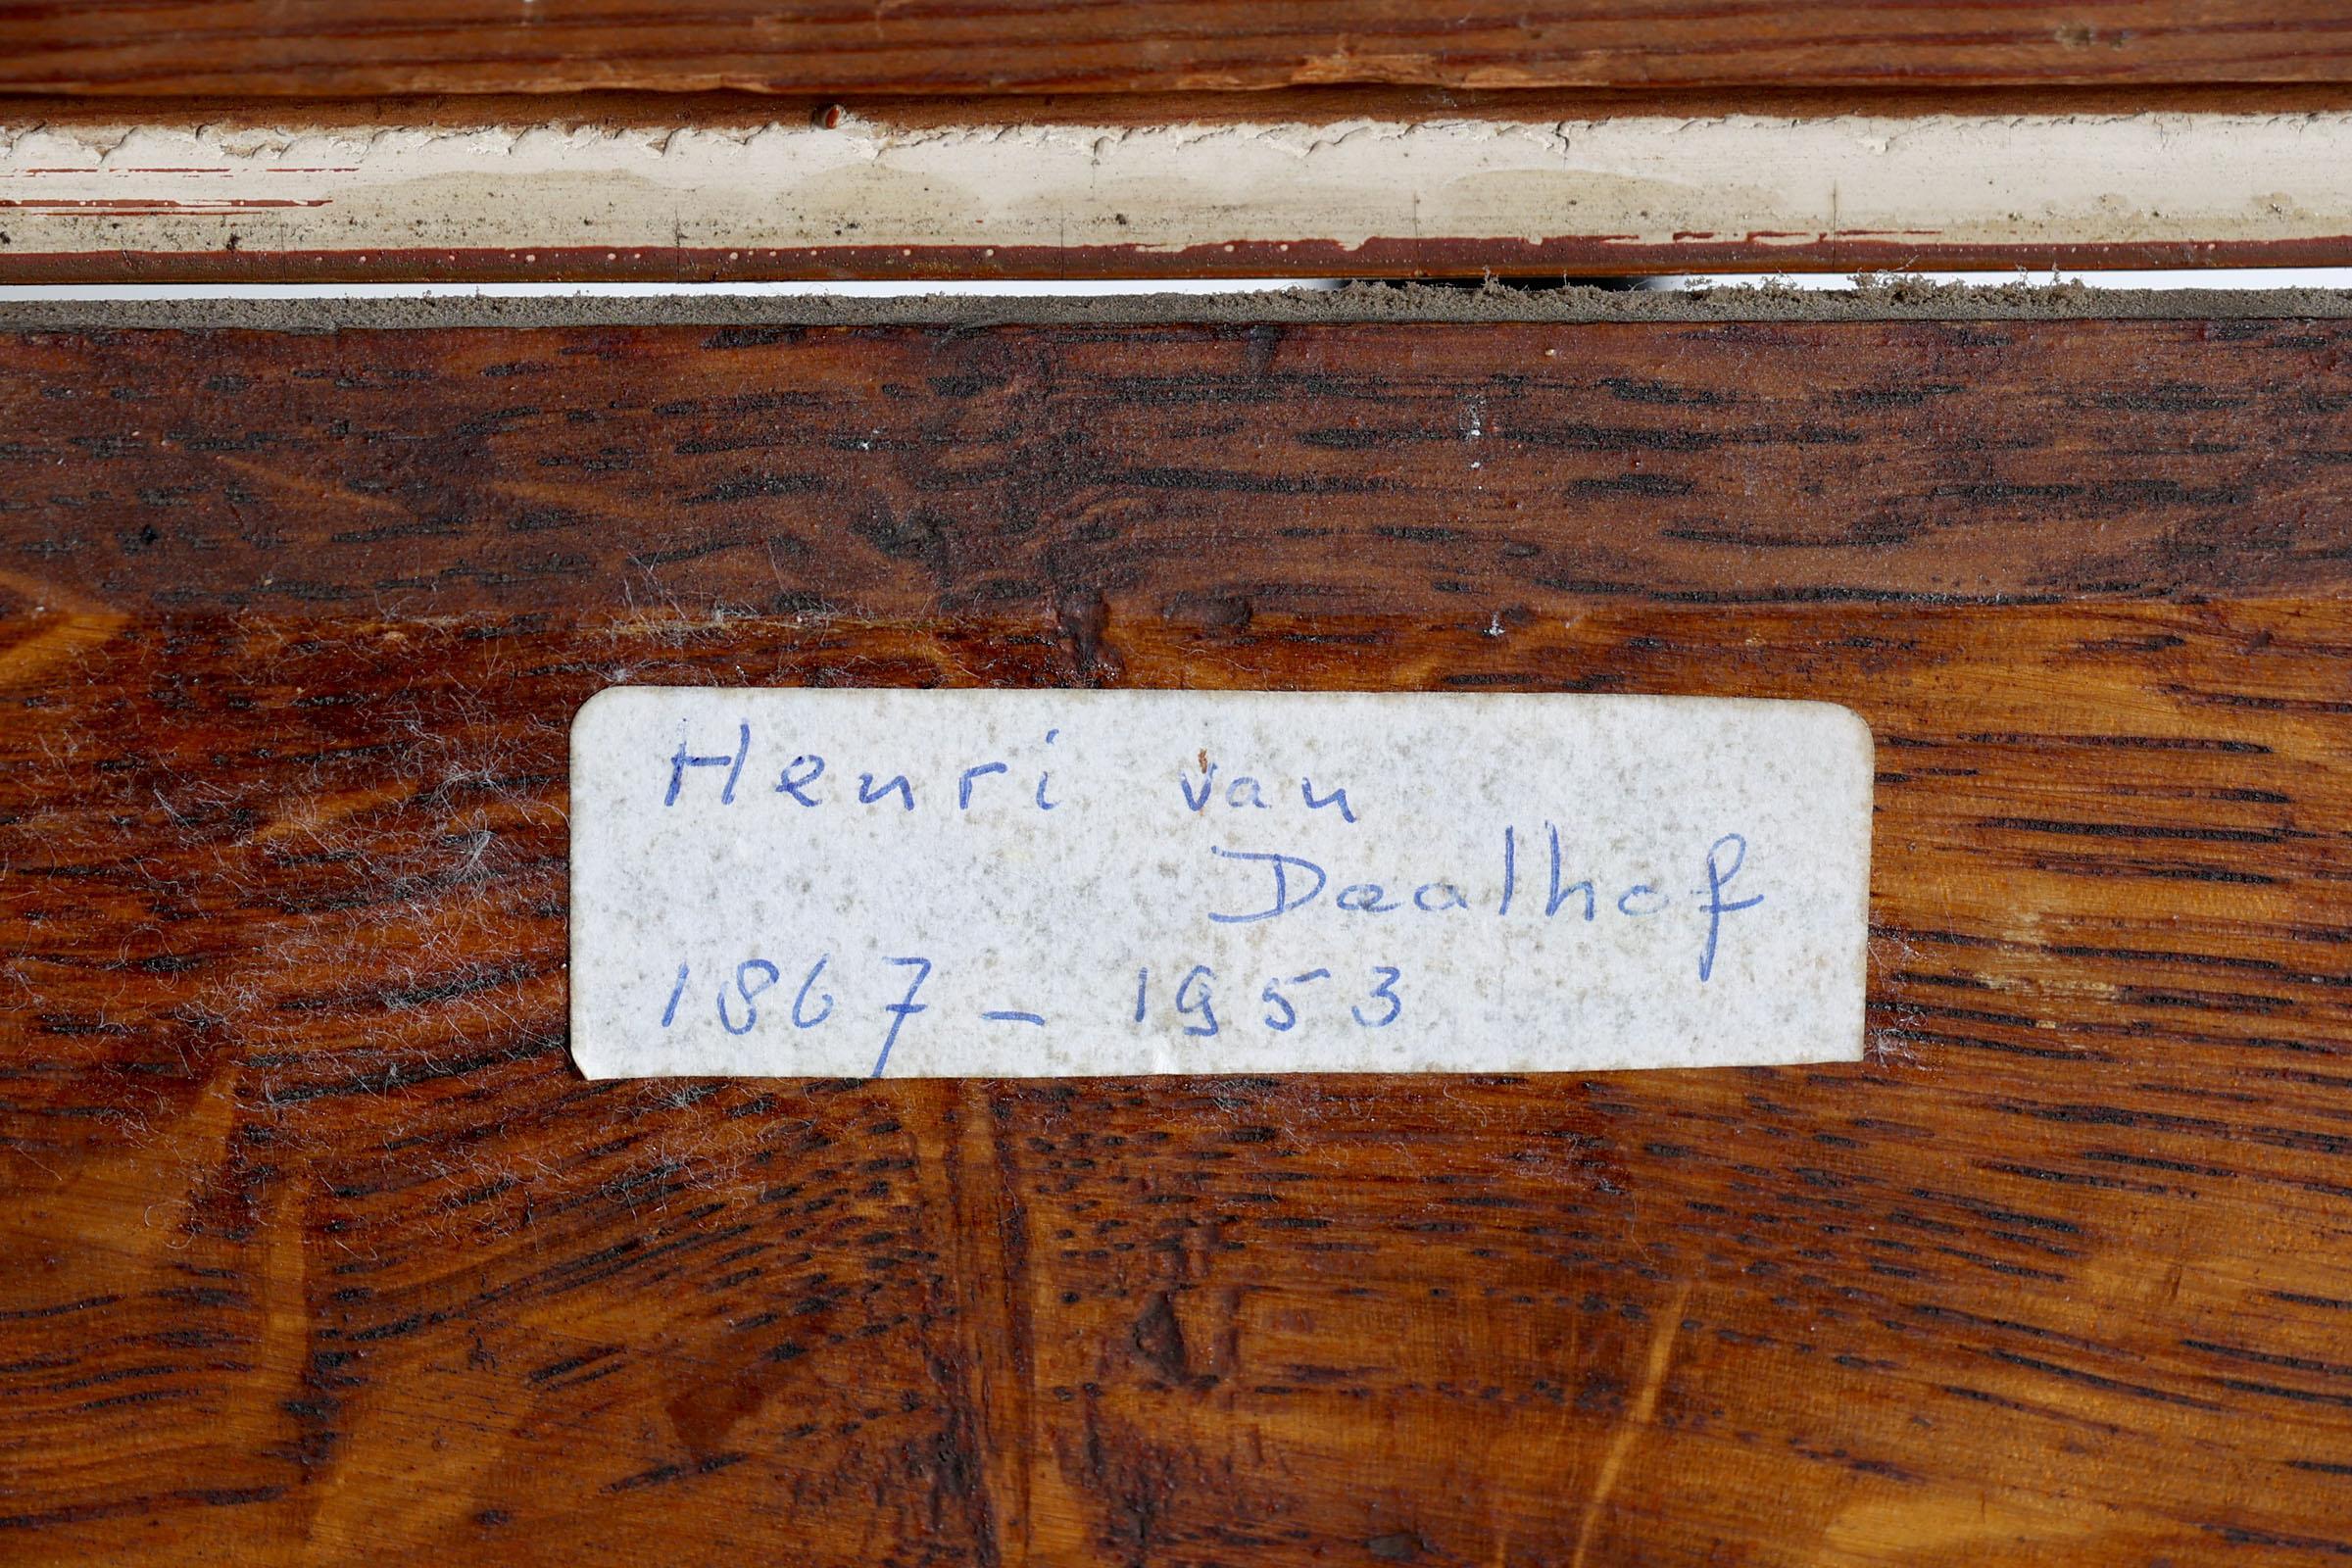 Henri van
Daalhof
1867 - 1953